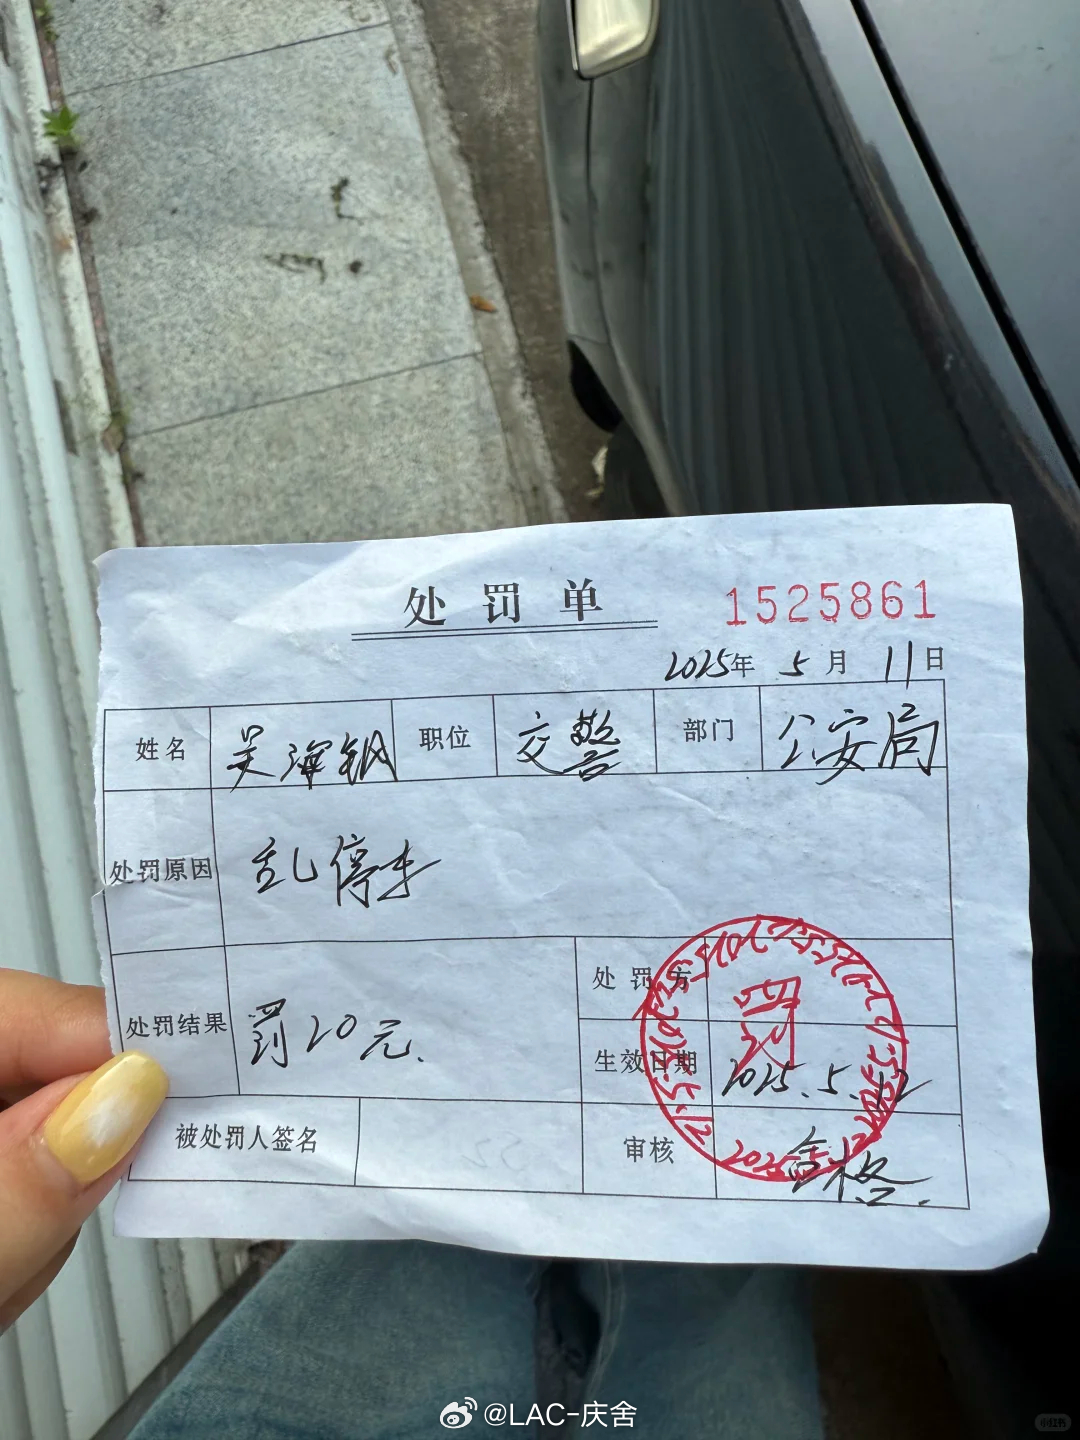 处罚单 1525861
2025年 5月 11日
姓名 吴海钢 职位 交警 部门 公安局
处罚原因 乱停车
处罚结果 罚20元. 处罚方 罚
生效日期 2025.5.12
被处罚人签名 审核 合格.
@LAC-庆舍
小红书